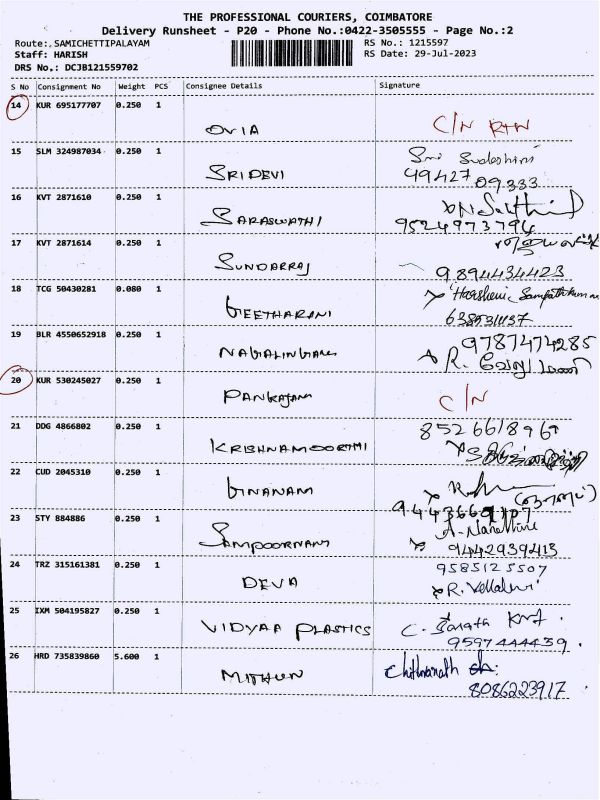 THE PROFESSIONAL COURIERS, COIMBATORE
Delivery Runsheet - P20 - Phone No.:0422-3505555 - Page No.:2
Route: SAMICHETTIPALAYAM
RS No.: 1215597
Staff: HARISH
RS Date: 29-Jul-2023
DRS No.: DCJB121559702
S No Consignment No Weight PCS Consignee Details Signature
14 KUR 695177707 0.250 1
OVIA C/N RTN
15 SLM 324987034 0.250 1
Sri Sudeshini
SRIDEVI 49427 09333
16 KVT 2871610 0.250 1
SARASWATHI 9524973794
17 KVT 2871614 0.250 1
SUNDARRAJ 9894434423
18 TCG 50430281 0.080 1
Harsheni
GEETHARANI
19 BLR 4550652918 0.250 1
9787474285
NAGALINGAM R.
20 KUR 530245027 0.250 1
PANKAJAM C/N
21 DDG 4866802 0.250 1
KRISHNAMOORTHI
22 CUD 2045310 0.250 1
GNANAM
23 STY 884886 0.250 1
SAMPOORNAM 9442939413
24 TRZ 315161381 0.250 1
9585125507
DEVA R.
25 IXM 504195827 0.250 1
VIDYAA PLASTICS C.
9597444439
26 HRD 735839860 5.600 1
MITHUN
8086223917